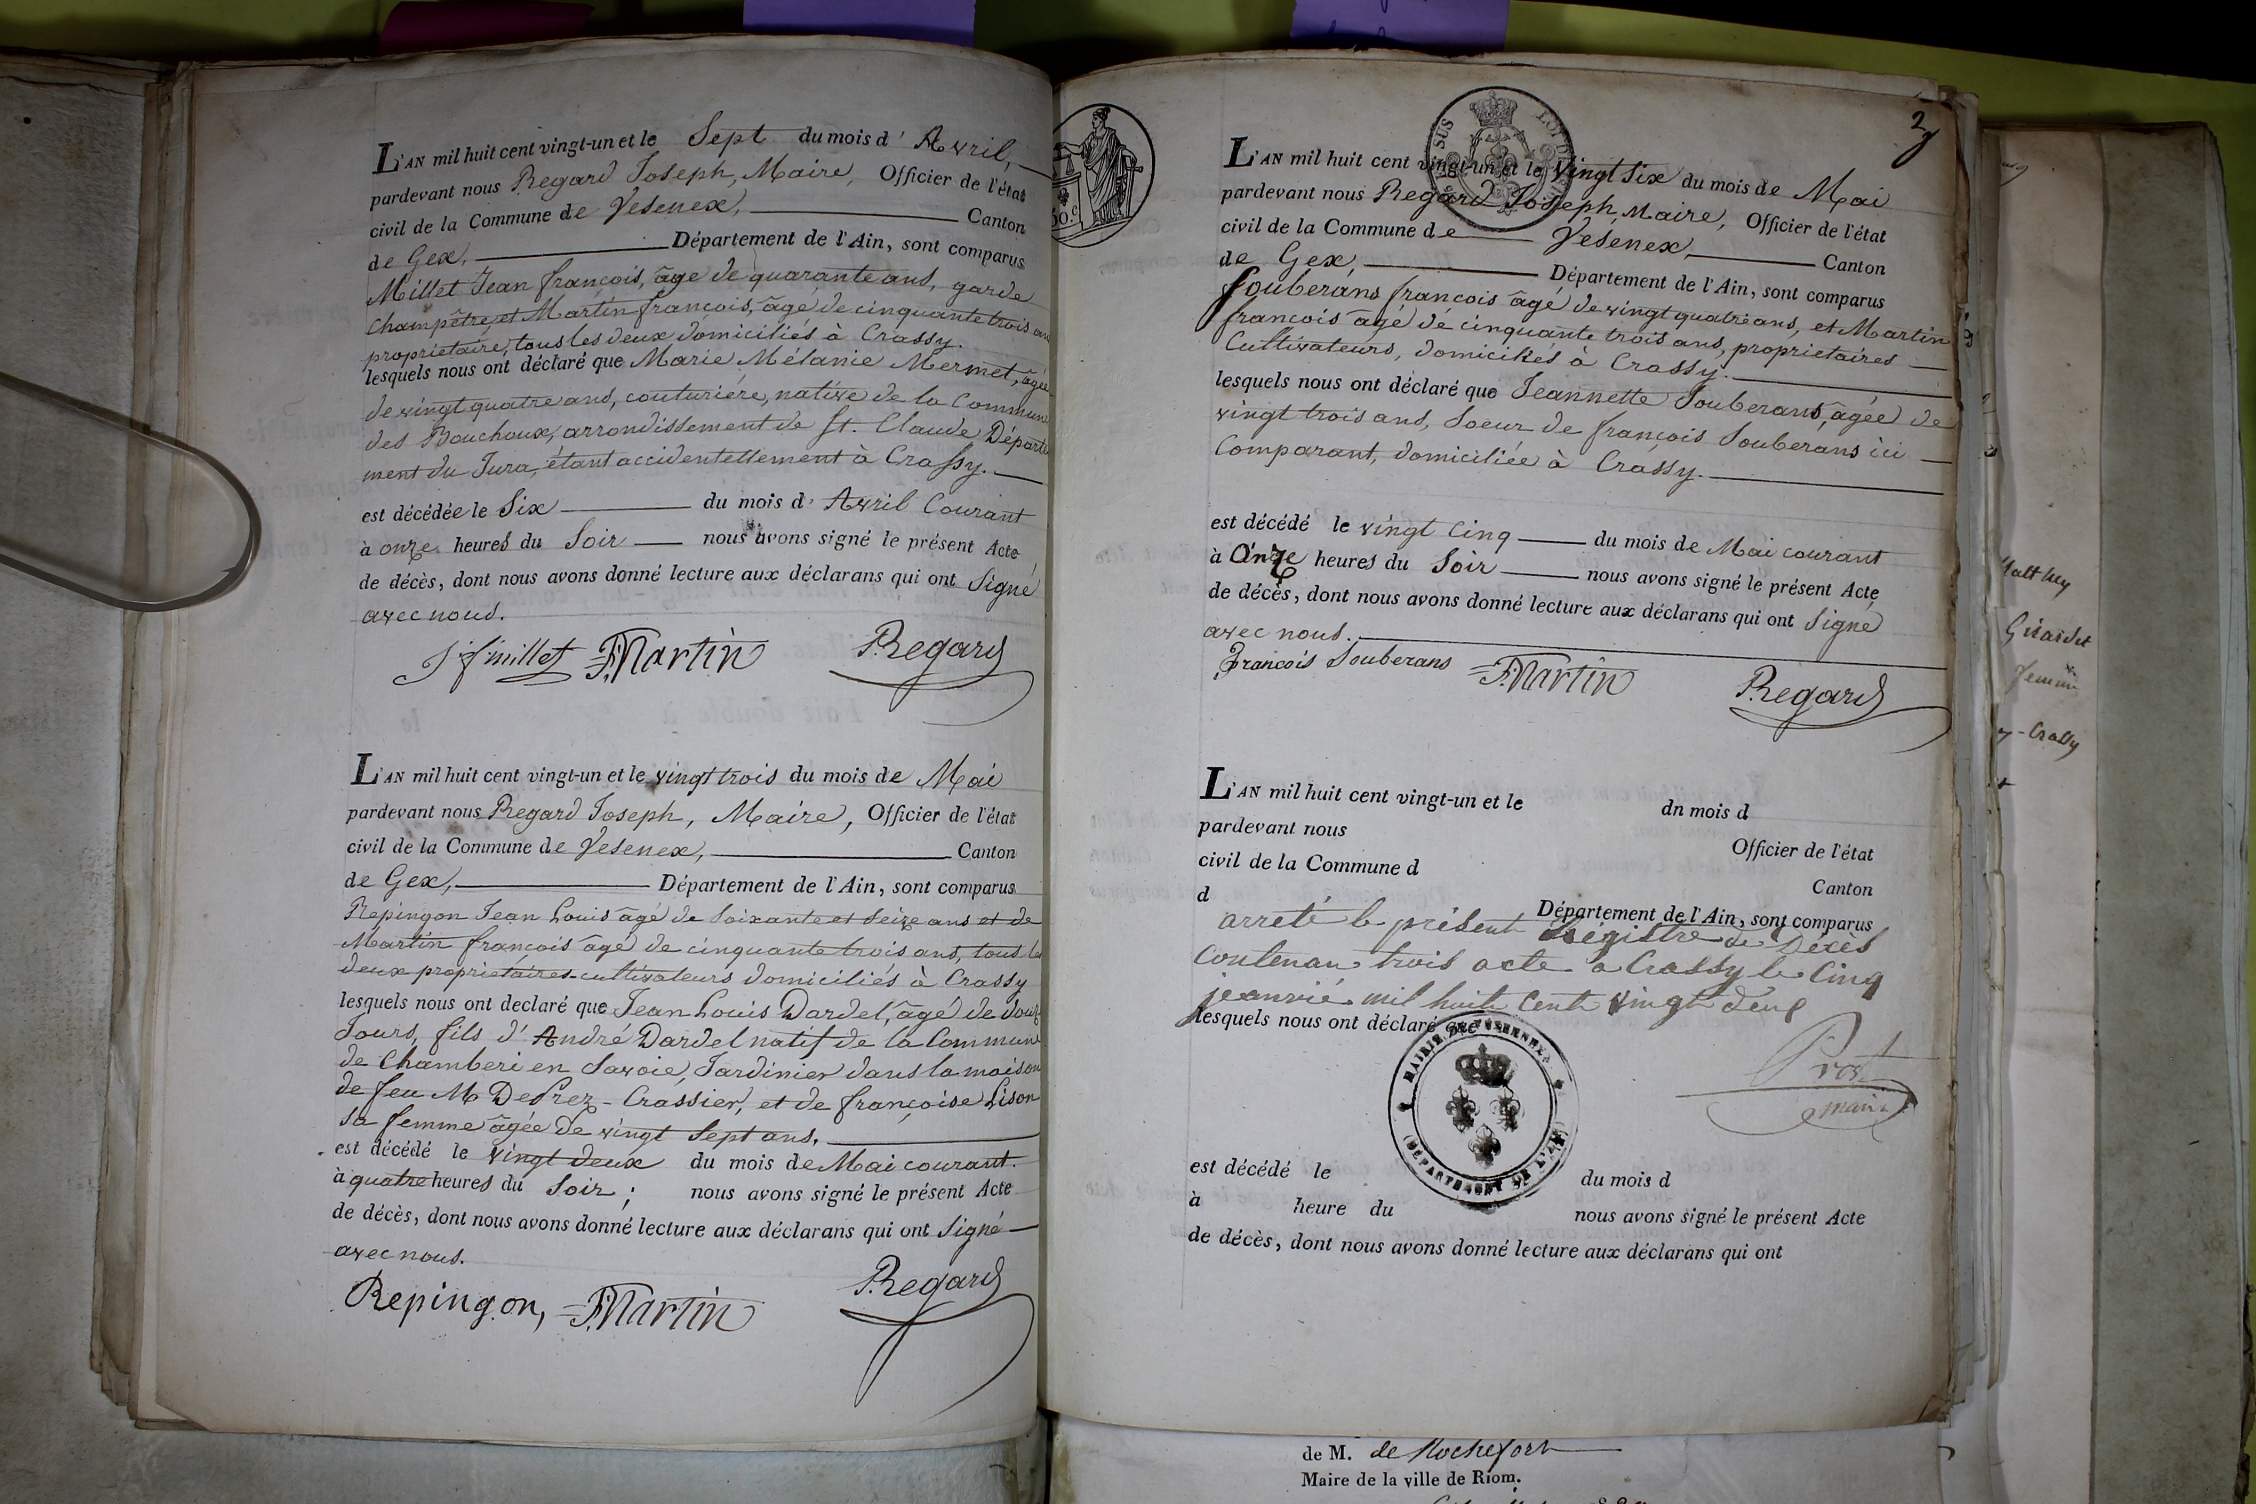 L'AN mil huit cent vingt-un et le Sept du mois d' Avril,
pardevant nous Regard Joseph, Maire, Officier de l'état
civil de la Commune de Vesenex, Canton
de Gex, Département de l'Ain, sont comparus
Millet Jean françois, âgé de quarante ans, garde
Champêtre, et Martin françois, âgé de cinquante trois ans
propriétaire, tous les deux domiciliés à Crassy.
lesquels nous ont déclaré que Marie Mélanie Mermet, âgée
de vingt quatre ans, couturière, native de la Commune
des Bouchoux, arrondissement de St. Claude Départe
ment du Jura, étant accidentellement à Crassy.
est décédée le Six du mois d' Avril Courant
à onze heures du Soir nous avons signé le présent Acte
de décès, dont nous avons donné lecture aux déclarans qui ont Signé
avec nous.
J f millet F. Martin Regard
L'AN mil huit cent vingt-un et le vingt trois du mois de Mai
pardevant nous Regard Joseph, Maire, Officier de l'état
civil de la Commune de Vesenex, Canton
de Gex, Département de l'Ain, sont comparus
Repingon Jean Louis âgé de Soixante et Seize ans et de
Martin françois âgé de cinquante trois ans, tous les
deux propriétaires cultivateurs domiciliés à Crassy
lesquels nous ont declaré que Jean Louis Dardel, âgé de douze
Jours, fils d' André Dardel natif de la Commune
de Chamberi en Savoie, Jardinier dans la maison
de feu M DePrez-Crassier, et de françoise Lison
Sa femme âgée de vingt Sept ans.
est décédé le Vingt deux du mois de Mai courant.
à quatre heures du Soir; nous avons signé le présent Acte
de décès, dont nous avons donné lecture aux déclarans qui ont Signé
avec nous.
Repingon, F. Martin Regard
50 c.
SUS
2
L'AN mil huit cent vingt-un et le Vingt Six du mois de Mai
pardevant nous Regard Joseph, Maire, Officier de l'état
civil de la Commune de Vesenex, Canton
de Gex, Département de l'Ain, sont comparus
Souberans françois âgé de vingt quatre ans, et Martin
françois âgé de cinquante trois ans, propriétaires
Cultivateurs, domiciliés à Crassy.
lesquels nous ont déclaré que Jeannette Souberans, âgée de
vingt trois ans, Soeur de françois Souberans ici
Comparant, domiciliée à Crassy.
est décédé le vingt Cinq du mois de Mai courant
à Onze heures du Soir nous avons signé le présent Acte
de décès, dont nous avons donné lecture aux déclarans qui ont Signé
avec nous.
François Souberans F. Martin Regard
L'AN mil huit cent vingt-un et le dn mois d
pardevant nous Officier de l'état
civil de la Commune d Canton
d Département de l'Ain, sont comparus
arreté le présent Régistre de Décès
contenan trois acte a Crassy le Cinq
jeanvié mil huit Cent vingt deux
lesquels nous ont déclaré que
Prost
maire
MAIRIE DE VESENEX
(DÉPARTEMENT DE L'AIN)
est décédé le du mois d
à heure du nous avons signé le présent Acte
de décès, dont nous avons donné lecture aux déclarans qui ont
Girardet
Crassy
de M. de Rochefort
Maire de la ville de Riom.